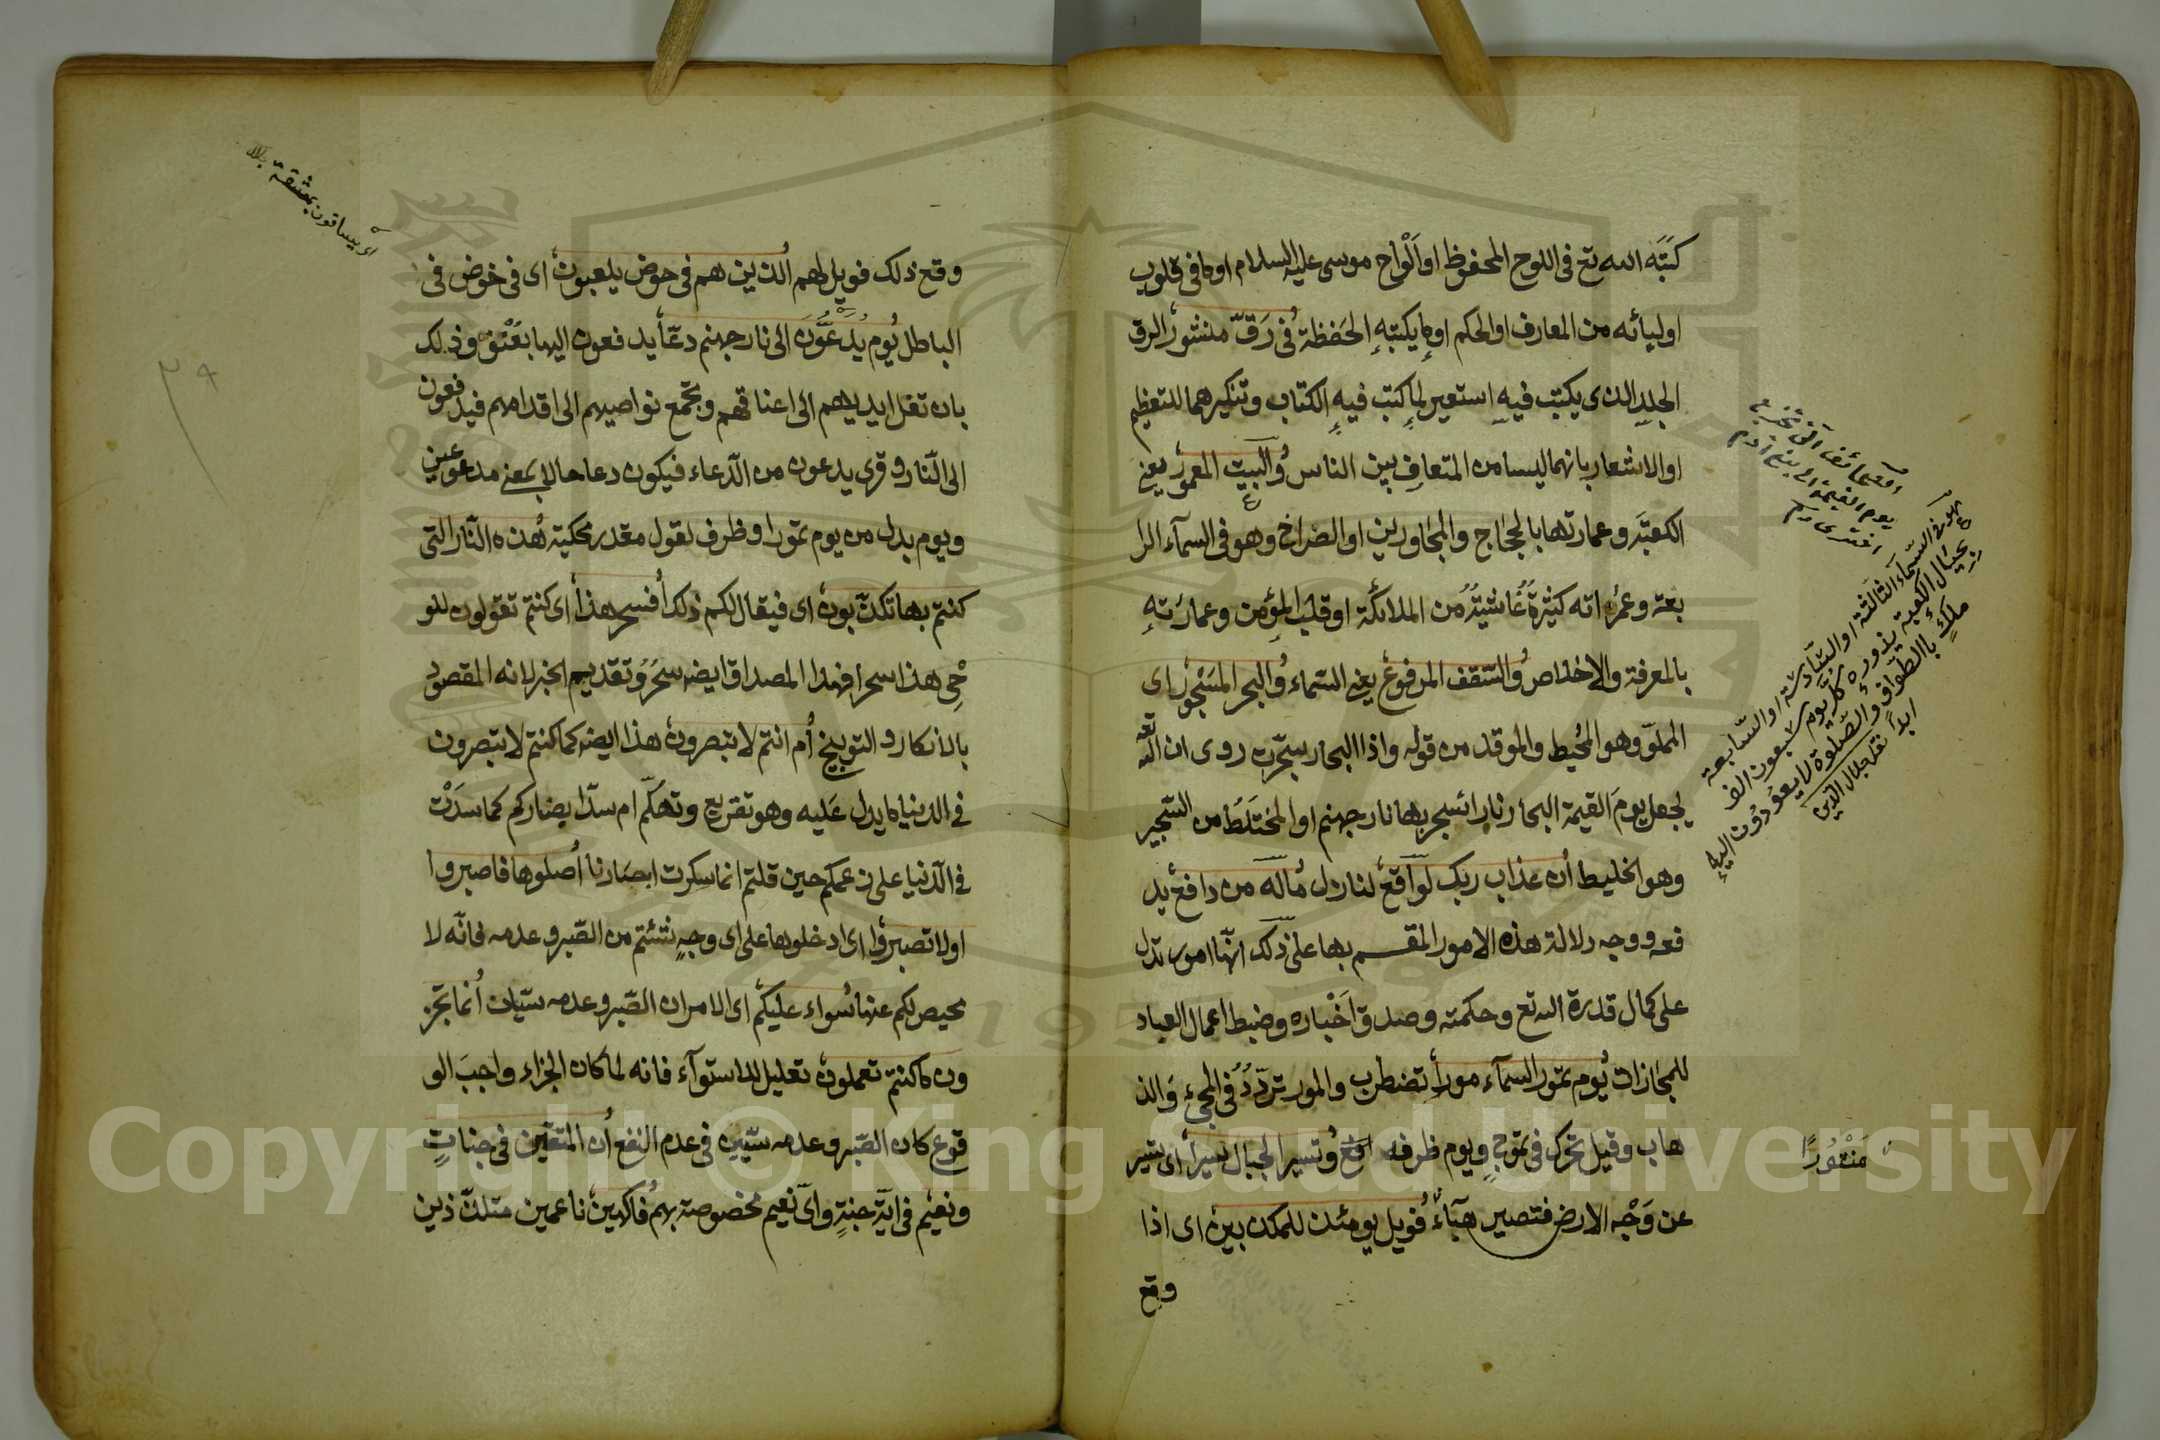 كتبه الله تع في اللوح المحفوظ او الواح موسى عليه السلام او ما في قلوب
اوليائه من المعارف او الحكم او ما يكتبه الحفظة في رق منشور الرق
الجلد الذى يكتب فيه استعير لما كتب فيه الكتاب وتنكيرهما للتعظيم
او الاشعار بانهما ليسا من المتعارف بين الناس والبيت المعمور يعنى
الكعبة وعمارتها بالحجاج والمجاورين او الضراح وهو في السمآء الرا
بعة وعمرانه كثيرة غاشيته من الملائكة او قلب المؤمن وعمارته
بالمعرفة والاخلاص والسقف المرفوع يعنى السماء والبحر المسجور اى
المملو وهو المحيط والموقد من قوله واذا البحار سجرت روى ان الله تعه
يجعل يوم القيمة البحار نارا تسجر بها نار جهنم او المختلط من السجير
وهو الخليط ان عذاب ربك لواقع لنازل ماله من دافع يد
فعه ووجه دلالة هذه الامور المقسم بها على ذلك انها امور تدل
على كمال قدرة الله تع وحكمته وصدق اخباره وضبط اعمال العباد
للمجازات يوم تمور السمآء مورا تضطرب والمور تردد في المجئ والذ
هاب وقيل تحرك في تموج ويوم ظرفه وتسير الجبال سيرا اى تسير
عن وجه الارض فتصير هبآء فويل يومئذ للمكذبين اى اذا
وقع
منثورًا
في السمآء الثالثة او السادسة او السابعة
بحيال الكعبة يزوره كل يوم سبعون الف
ملك بالطواف والصلوة لا يعودون اليه
ابدا نقل جلال الدين
وقع ذلك فويل لهم الذين هم في خوض يلعبون اى في خوض في
الباطل يوم يدعون الى نار جهنم دعا يدفعون اليها بعنف وذلك
بان تغل ايديهم الى اعناقهم وتجمع نواصيهم الى اقدامهم فيدفعون
الى النار وقرى يدعون من الدعاء فيكون دعا حالا بمعنى مدعوعين
ويوم بدل من يوم تمورا وظرف لقول مقدر محكيته هذه النار التى
كنتم بها تكذبون اى فيقال لكم ذلك افسحر هذا اى كنتم تقولون للو
حى هذا سحر افهذا المصداق ايضه سحر وتقديم الخبر لانه المقصود
بالانكار والتوبيخ ام انتم لا تبصرون هذا ايضه كما كنتم لا تبصرون
في الدنيا ما يدل عليه وهو تقريع وتهكم ام سد ابصاركم كما سدت
في الدنيا على زعمكم حين قلتم انما سكرت ابصارنا اصلوها فاصبروا
اولا تصبروا اى ادخلوها على اى وجه شئتم من الصبر وعدمه فانه لا
محيص لكم عنها سواء عليكم اى الامران الصبر وعدمه سيان انما تجز
ون ما كنتم تعملون تعليل للاستوآء فانه لما كان الجزاء واجب الو
قوع كان الصبر وعدمه سيين في عدم النفع ان المتقين في جنات
ونعيم في اية جنة واى نعيم مخصوصة بهم فاكهين ناعمين متلذذين
اى يساقون بمشقة
٣٩
Copyright © King Saud University